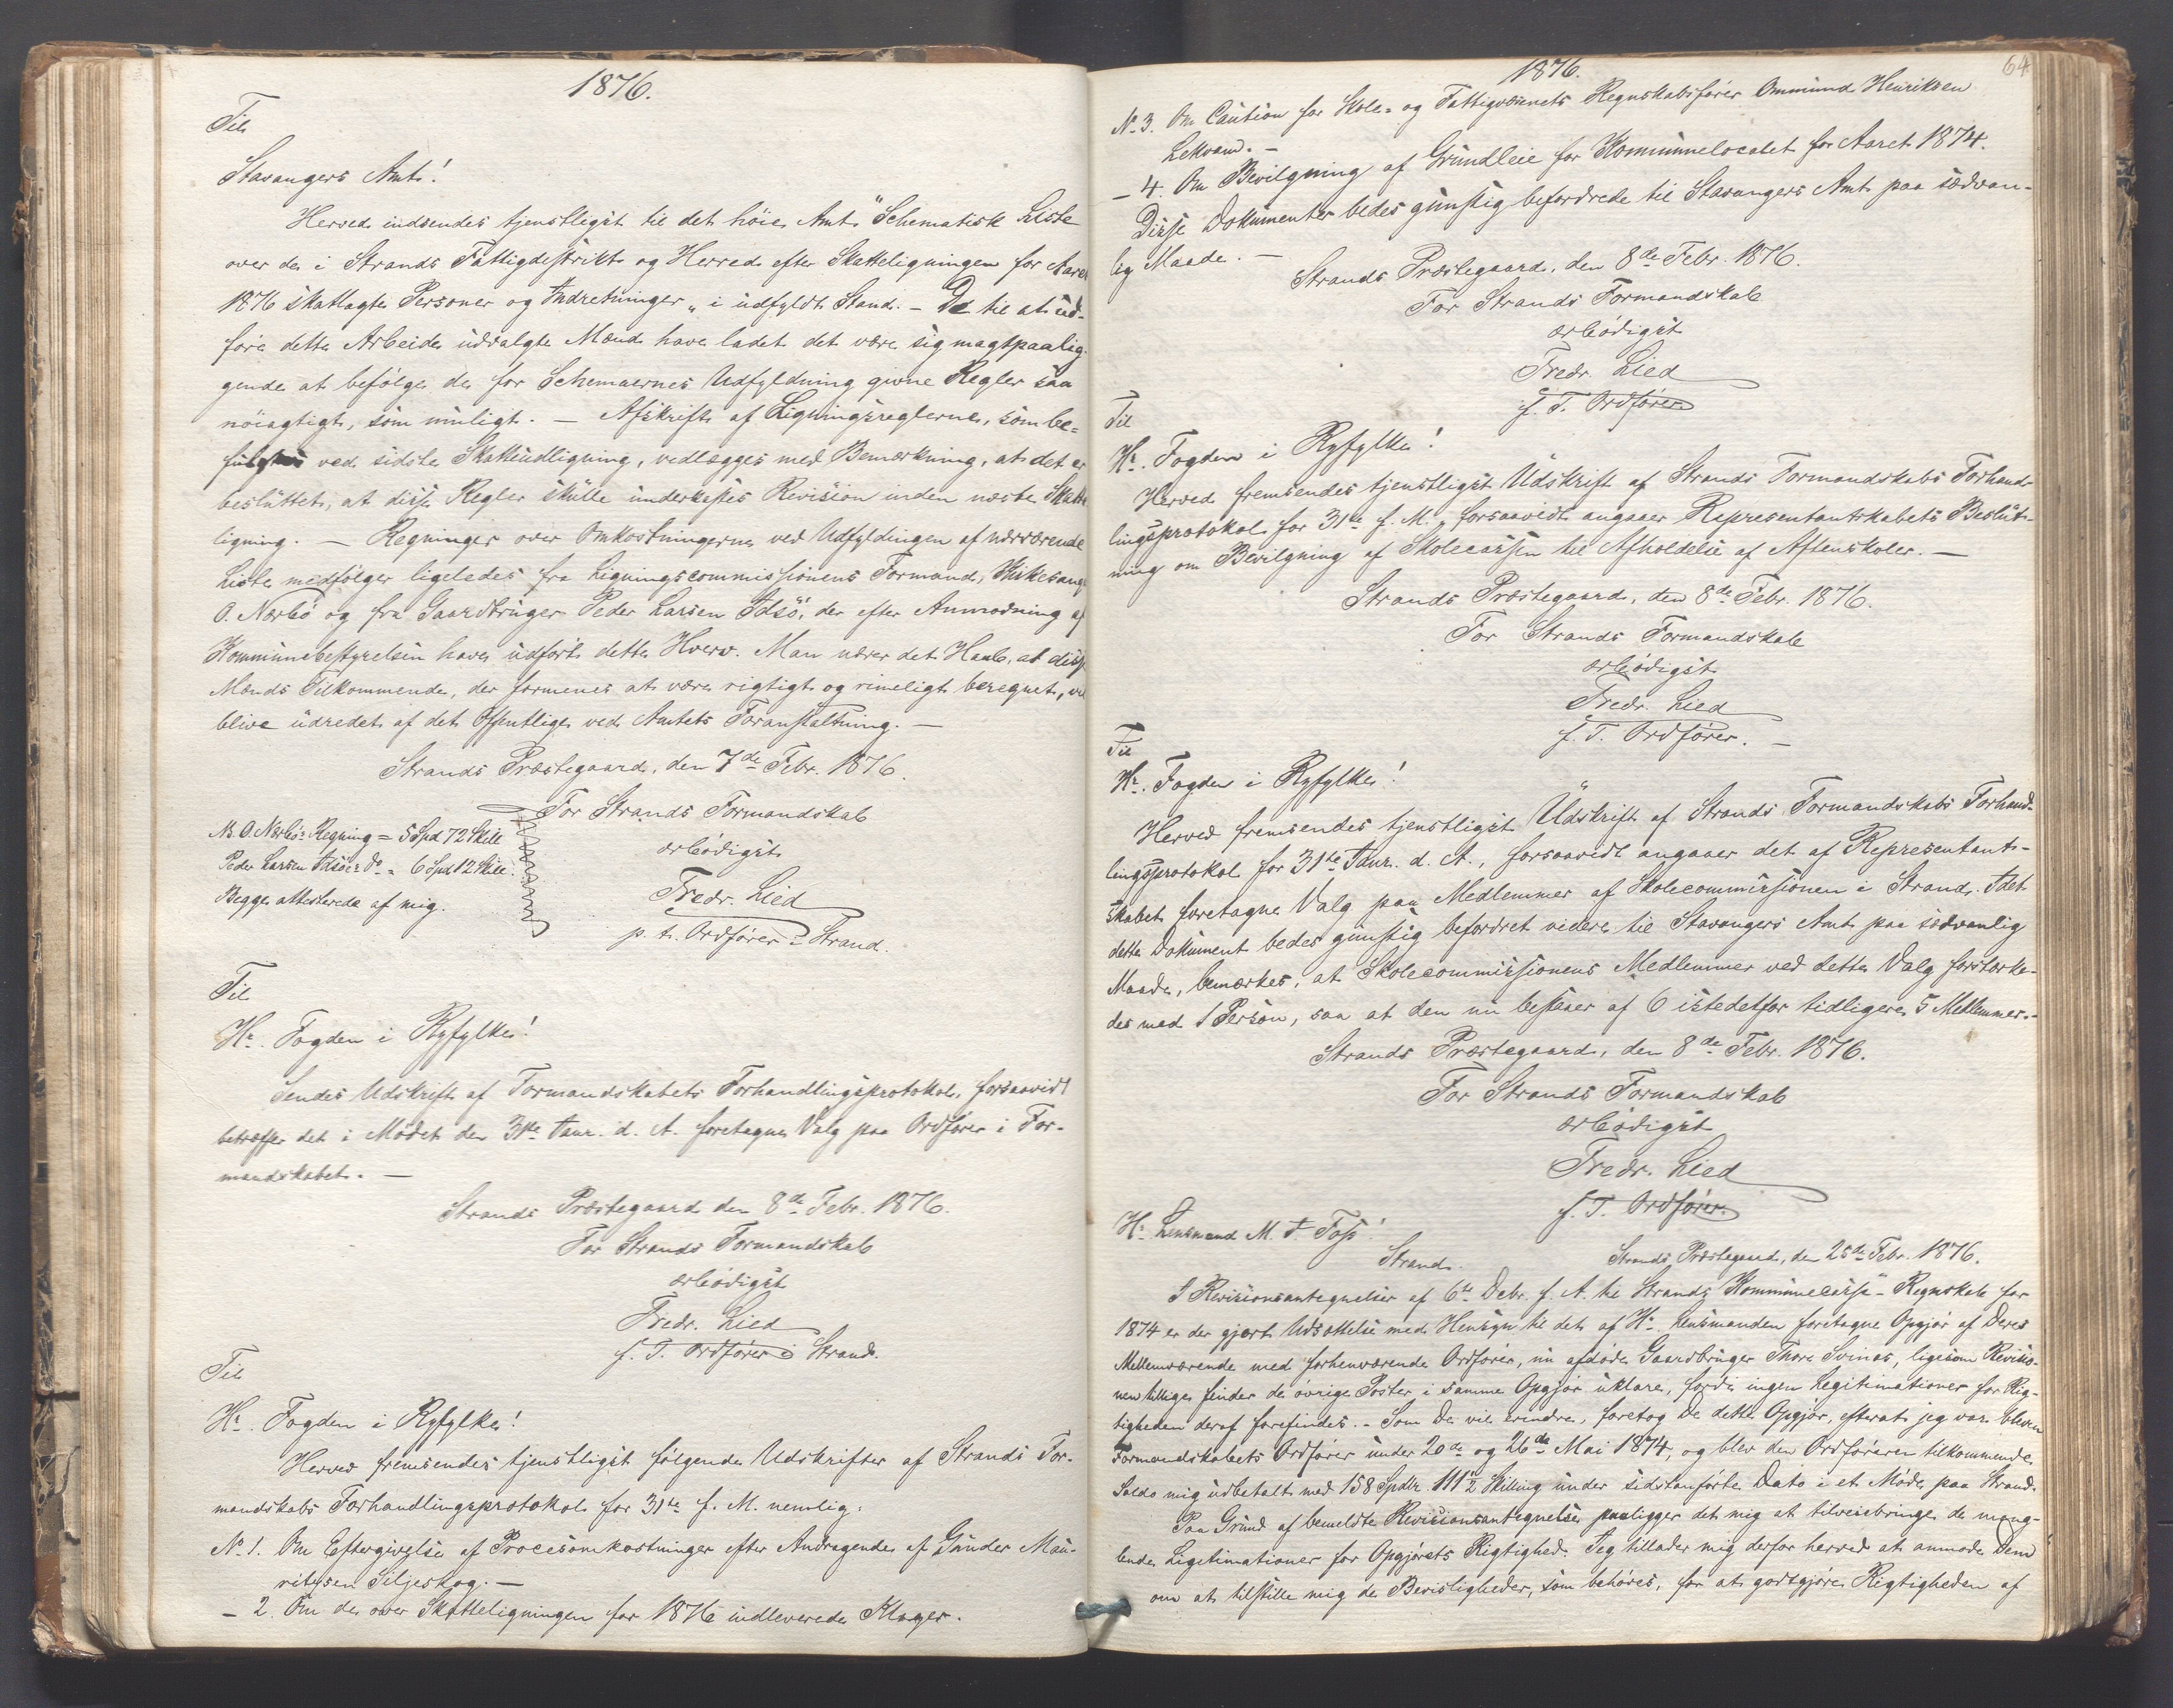 1876.
Til
Stavangers Amt!
Herved indsendes tjenstligst til det høie Amt "Schematisk Liste
over de i Strands Fattigdistrikt og Herred efter Skatteligningen for Aaret
1876 skatlagte Personer og Indretninger" i udfyldt Stand. – De til at ud-
føre dette Arbeide udvalgte Mænd have ladet det være sig magtpaalig-
gende at befølge de for Schemaernes Udfyldning givne Regler saa
nöiagtigt, som muligt. – Afskrift af Ligningsreglerne, som be-
fulgtes ved sidste Skatteudligning, vedlægges med Bemærkning, at det er
besluttet, at disse Regler skulle underkastes Revision inden næste Skatte-
ligning. – Regninger over Omkostningerne ved Udfyldingen af nærværende
Liste medfølger ligeledes fra Ligningscommissionens Formand, Kirkesanger
O. Nærbö og fra Gaardbruger Peder Larsen Idsö, der efter Anmodning af
Kommunebestyrelsen have udført dette Hverv. Man nærer det Haab, at disse
Mænds Tilkommende, der formenes at være rigtigt og rimeligt beregnet, vil
blive udredet af det Offentlige ved Amtets Foranstaltning. –
Strands Præstegaard, den 7de Febr. 1876.
For Strands Formandskab
ærbödigst
Fredr. Lied
p. t. Ordfører i Strand.
N. O. Nærbös Regning = 5 Spd 72 Skill
Peder Larsen Idsöes Do = 6 Spd 12 Skill.
Begge attesterede af mig.
Til
Hr. Fogden i Ryfylke!
Sendes Udskrift af Formandskabets Forhandlingsprotokol, forsaavidt
betræffer det i Mødet den 31te Janr. d. A. foretagne Valg paa Ordfører i For-
mandskabet. –
Strands Præstegaard den 8de Febr. 1876.
For Strands Formandskab
ærbödigst
Fredr. Lied
f. T. Ordfører i Strand.
Til
Hr. Fogden i Ryfylke!
Herved fremsendes tjenstligst følgende Udskrifter af Strands For-
mandskabs Forhandlingsprotokol for 31te f. M. nemlig:
No 1. Om Eftergivelse af Procesomkostninger efter Andragende af Gunder Mau-
ritzsen Siljeskog. –
– 2. Om de over Skatteligningen for 1876 indleverede Klager.
64
1876.
No 3. Om Caution for Skole- og Fattigvæsenets Regnskabsfører Ommund Henriksen
Lekvam. –
– 4. Om Bevilgning af Grundleie for Kommunelocalet for Aaret 1874.
Disse Dokumenter bedes gunstig befordrede til Stavangers Amt paa sædvan-
lig Maade. –
Strands Præstegaard, den 8de Febr. 1876.
For Strands Formandskab
ærbödigst
Fredr. Lied
f. T. Ordfører
Til
Hr. Fogden i Ryfylke!
Herved fremsendes tjenstligst Udskrift af Strands Formandskabs Forhand-
lingsprotokol for 31te f. M., forsaavidt angaaer Representantskabets Beslut-
ning om Bevilgning af Skolecassen til Afholdelse af Aftenskoler. –
Strands Præstegaard, den 8de Febr. 1876.
For Strands Formandskab
ærbödigst
Fredr. Lied
f. T. Ordfører. –
Til
Hr. Fogden i Ryfylke!
Herved fremsendes tjenstligst Udskrift af Strands Formandskabs Forhand-
lingsprotokol for 31te Janr. d. A., forsaavidt angaaer det af Representant-
skabet foretagne Valg paa Medlemmer af Skolecommissionen i Strand. Idet
dette Dokument bedes gunstig befordret videre til Stavangers Amt paa sædvanlig
Maade, bemærkes, at Skolecommissionens Medlemmer ved dette Valg forstærke-
des med 1 Person, saa at den nu bestaaer af 6 istedetfor tidligere 5 Medlemmer. –
Strands Præstegaard, den 8de Febr. 1876.
For Strands Formandskab
ærbödigst
Fredr. Lied
f. T. Ordfører.
Hr. Lensmand M. T. Foss!
Strand.
Strands Præstegaard, den 25de Febr. 1876.
I Revisionsantegnelser af 6te Debr. f. A. til Strands Kommunecasse-Regnskab for
1874 er der gjort Udsættelse med Hensyn til det af Hr. Lensmanden foretagne Opgjør af Deres
Mellemværende med forhenværende Ordfører, nu afdöde Gaardbruger Thore Svinas, ligesom Revisio-
nen tillige finder de övrige Poster i samme Opgjør uklare, fordi ingen Legitimationer for Rig-
tigheden deraf forefindes. – Som De vil erindre, foretog De dette Opgjør, efterat jeg var bleven
Formandskabets Ordfører under 20de og 26de Mai 1874, og blev den Ordføreren tilkommende
Saldo mig udbetalt med 158 Spdlr. 111 1/2 Skilling under sidstanførte Dato i et Møde paa Strand.
Paa Grund af bemeldte Revisionsantegnelser paaligger det mig at tilveiebringe de mang-
lende Legitimationer for Opgjørets Rigtighed. Jeg tillader mig derfor herved at anmode Dem
om at tilstille mig de Bevisligheder, som behöves, for at godtgjøre Rigtigheden af